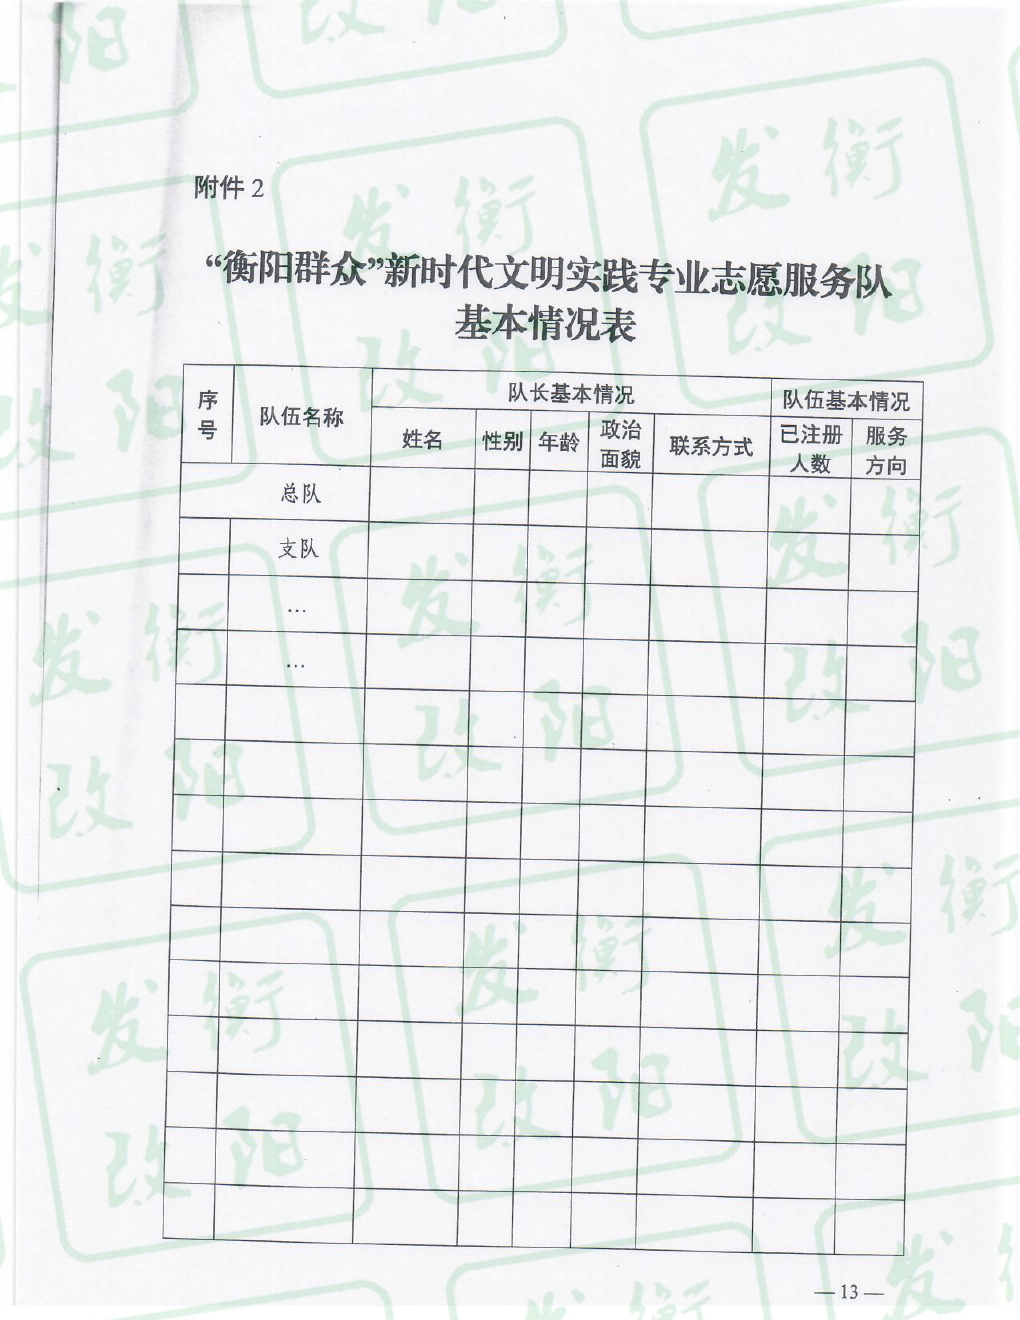 附件 2
“衡阳群众”新时代文明实践专业志愿服务队
基本情况表
序号 队伍名称 队长基本情况 队伍基本情况
姓名 性别 年龄 政治面貌 联系方式 已注册人数 服务方向
总队
支队
…
…
— 13 —